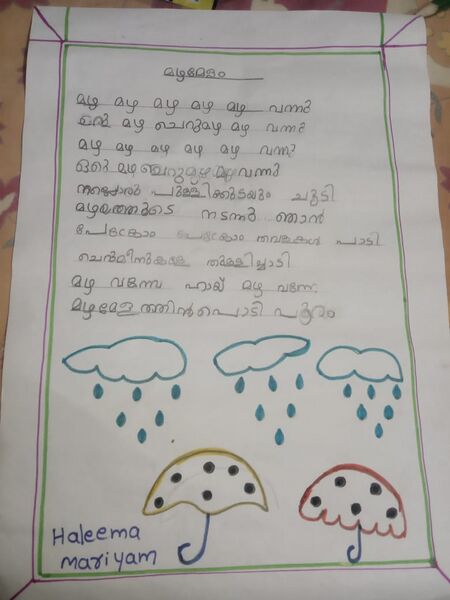 മഴമേളം
മഴ മഴ മഴ മഴ മഴ വന്നു
ഒരു മഴ ചെറുമഴ മഴ വന്നു
മഴ മഴ മഴ മഴ മഴ വന്നു
ഒരു മഴ ചെറുമഴ മഴ വന്നു
പുള്ളിക്കുടയും ചൂടി
മഴയത്തൂടെ നടന്നു ഞാൻ
പേക്രോം പേക്രോം തവളകൾ പാടി
ചെൻമീനുകളു തുള്ളിച്ചാടി
മഴ വന്നേ ഹായ് മഴ വന്നേ
മഴമേളത്തിൻ പൊടി പൂരം
Haleema
mariyam